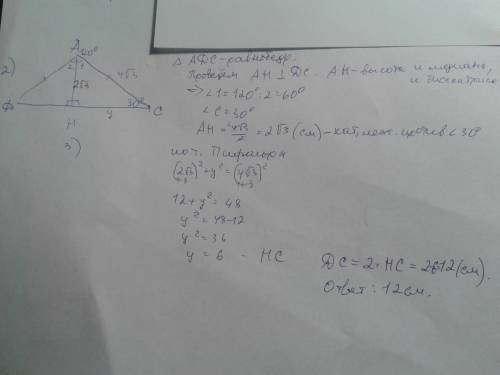 2)
A
120°
2 1
2√3
4√3
30°
D
H
y
C
3)
Δ ADC - равнобедр.
Проведем AH ⊥ DC. AH - высота и медиана,
и биссектриса
⇒ ∠1 = 120° : 2 = 60°
∠C = 30°
AH = 4√3/2 = 2√3 (см) - кат, леж. против ∠30°
по т. Пифагора
(2√3)² + y² = (4√3)²
12 + y² = 48
y² = 48-12
y² = 36
y = 6 - HC
DC = 2 · HC = 2·6=12 (см).
Ответ: 12 см.